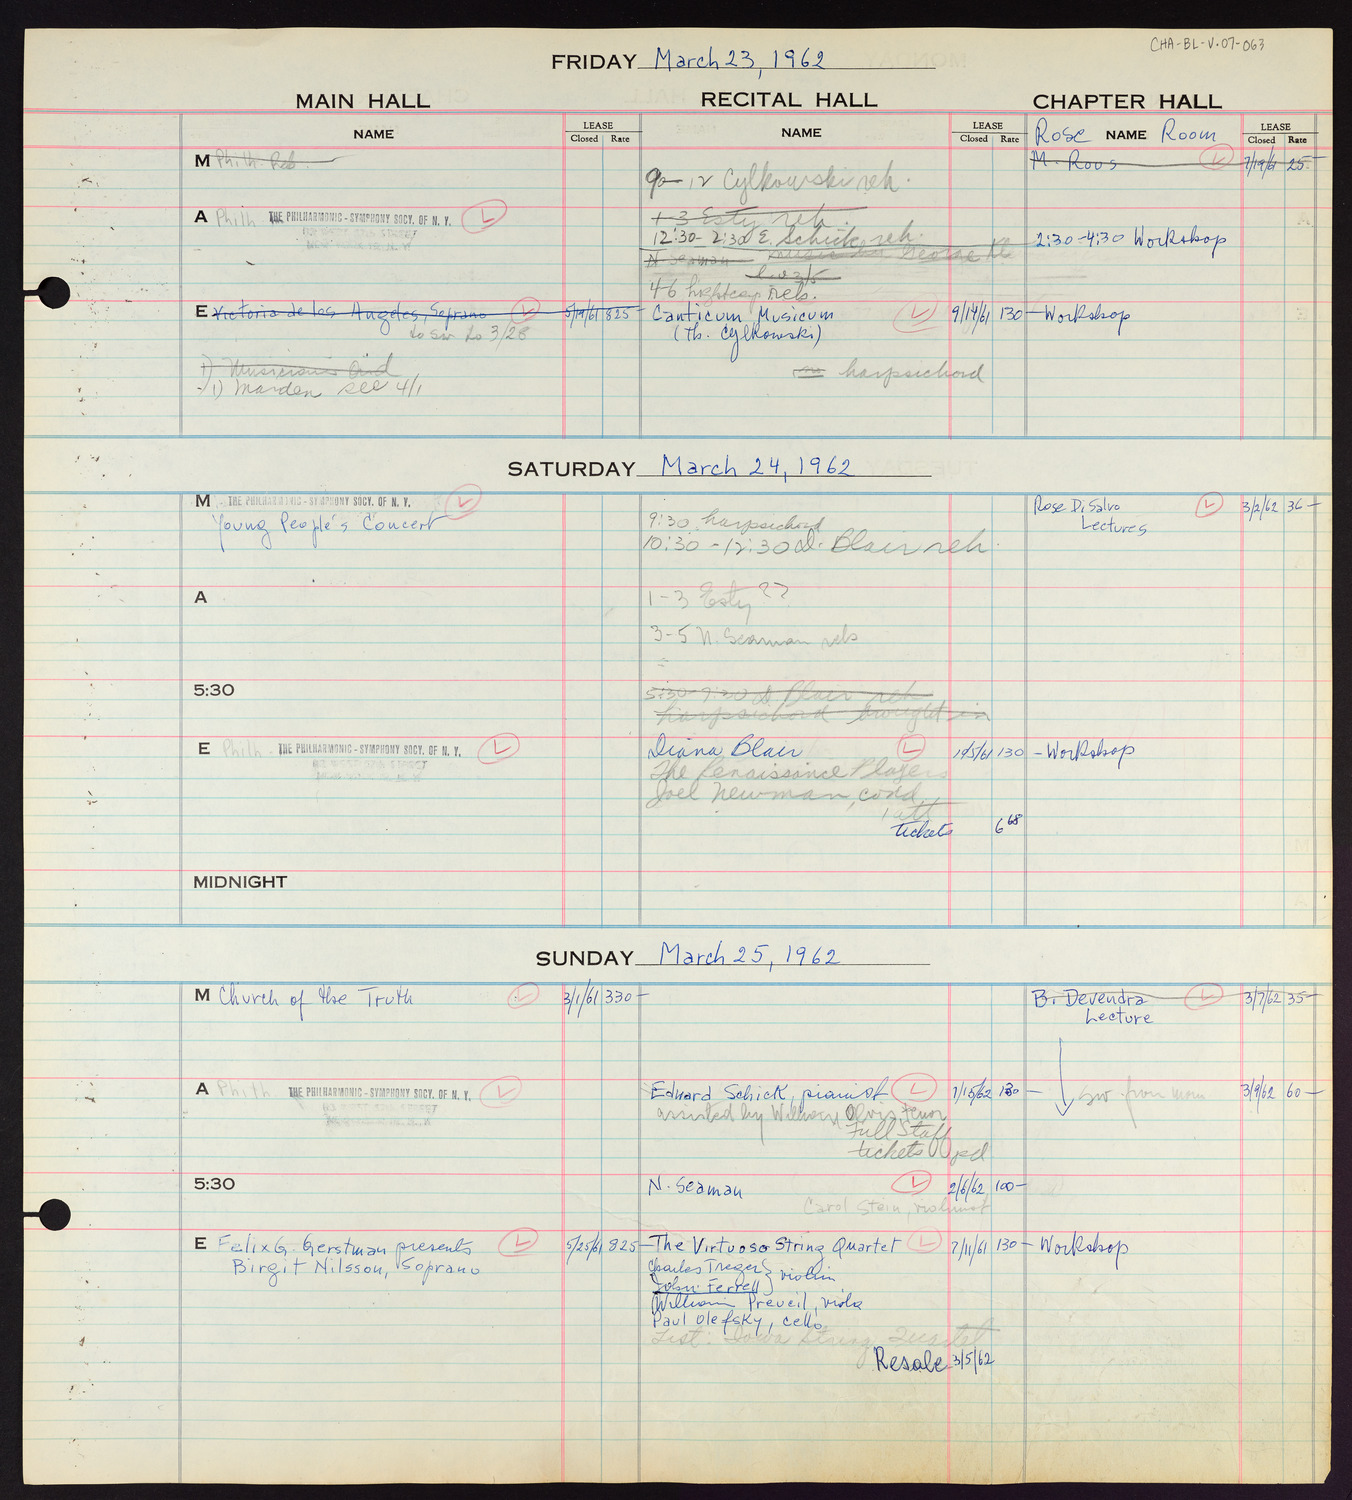 CHA-BL-V.07-063
FRIDAY March 23, 1962
MAIN HALL RECITAL HALL CHAPTER HALL
NAME LEASE Closed Rate NAME LEASE Closed Rate Rose NAME Room LEASE Closed Rate
M Philh. Reh
9-12 Cylkowski reh.
M. Rous 7/19/61 25-
A Philh THE PHILHARMONIC-SYMPHONY SOCY. OF N. Y.
1-3 Esty reh.
12:30-2:30 E. Schick reh.
2:30-4:30 Workshop
N Seaman
4-6 reh.
E Victoria de los Angeles, Soprano 5/19/61 825-
Canticum Musicum 9/14/61 130-
Workshop
to sw to 3/28
(Th. Cylkowski)
1) Musicians Aid
1) Marden see 4/1
harpsichord
SATURDAY March 24, 1962
M THE PHILHARMONIC-SYMPHONY SOCY. OF N. Y.
Young People's Concert
9:30 harpsichord
10:30-12:30 D. Blair reh.
Rose DiSalvo 3/2/62 36-
Lectures
A
1-3 Esty ??
3-5 N. Seaman reh
5:30
5:30-7:30 D. Blair reh
harpsichord brought in
E Philh. THE PHILHARMONIC-SYMPHONY SOCY. OF N. Y.
Diana Blair 130
- Workshop
The Renaissance Players
Joel Newman, cond.
tickets 6 68
MIDNIGHT
SUNDAY March 25, 1962
M Church of the Truth 3/1/61 330-
B. Devendra 3/7/62 35-
Lecture
A Philh. THE PHILHARMONIC-SYMPHONY SOCY. OF N. Y.
Eduard Schick, pianist 1/15/62 130-
sw. from morn 3/9/62 60-
assisted by William Olvis, tenor
Full Staff
tickets pd
5:30
N. Seaman 2/6/62 100-
Carol Stein, violinist
E Felix G. Gerstman presents 5/25/61 825-
Birgit Nilsson, Soprano
The Virtuoso String Quartet 7/11/61 130-
Workshop
Charles Treger } violin
John Ferrell
William Preucil, viola
Paul Olefsky, cello
List: Iowa String Quartet
Resale 3/5/62